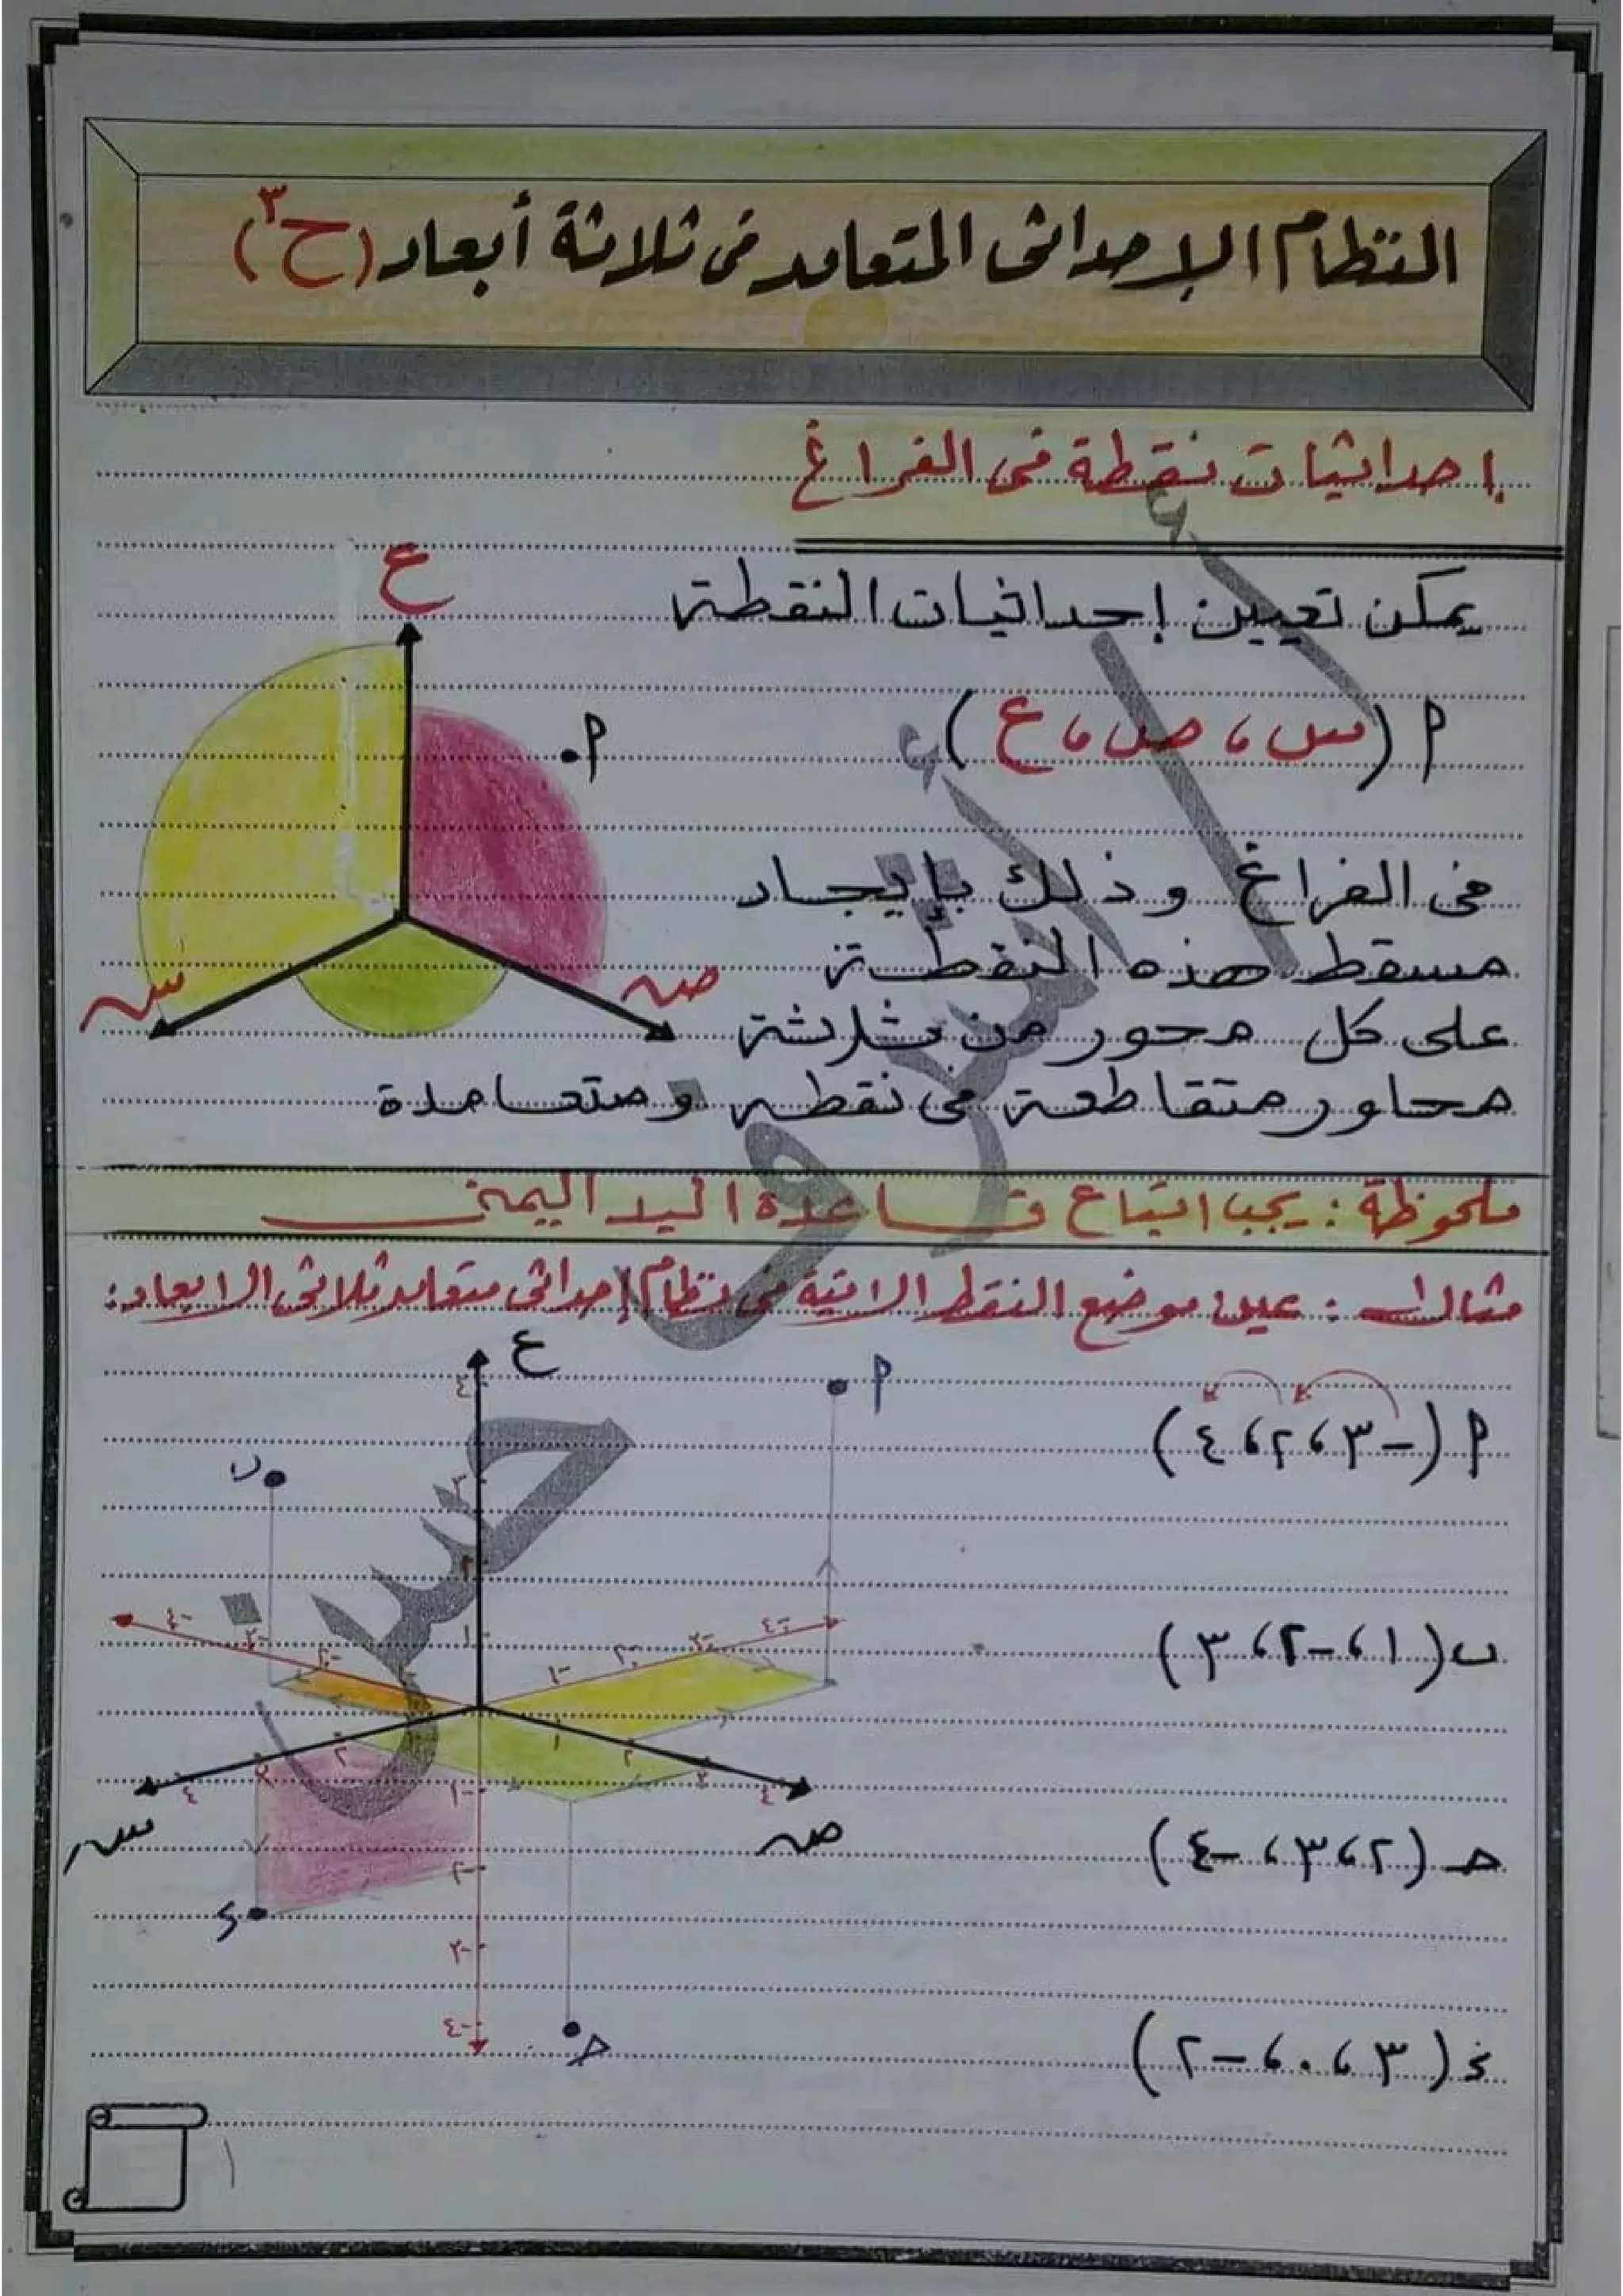 النظام الإحداثى المتعامد فى ثلاثة أبعاد (ح٣)
إحداثيات نقطة فى الفراغ
يمكن تعيين إحداثيات النقطة
ع
P (س ، ص ، ع)
P
فى الفراغ وذلك بإيجاد
مسقط هذه النقطة
س
ص
على كل محور من ثلاثة
محاور متقاطعة فى نقطه ومتعامدة
ملحوظة : يجب اتباع قاعدة اليد اليمنى
مثال ١ : عين موضع النقط الاتية فى نظام إحداثى متعامد ثلاثى الابعاد :
ع
P
P (-٣ ، ٢ ، ٤)
ب
ب (١ ، -٢ ، ٣)
س
ص
حـ (٢ ، ٣ ، -٤)
ء
حـ
ء (٣ ، ٠ ، -٢)
١